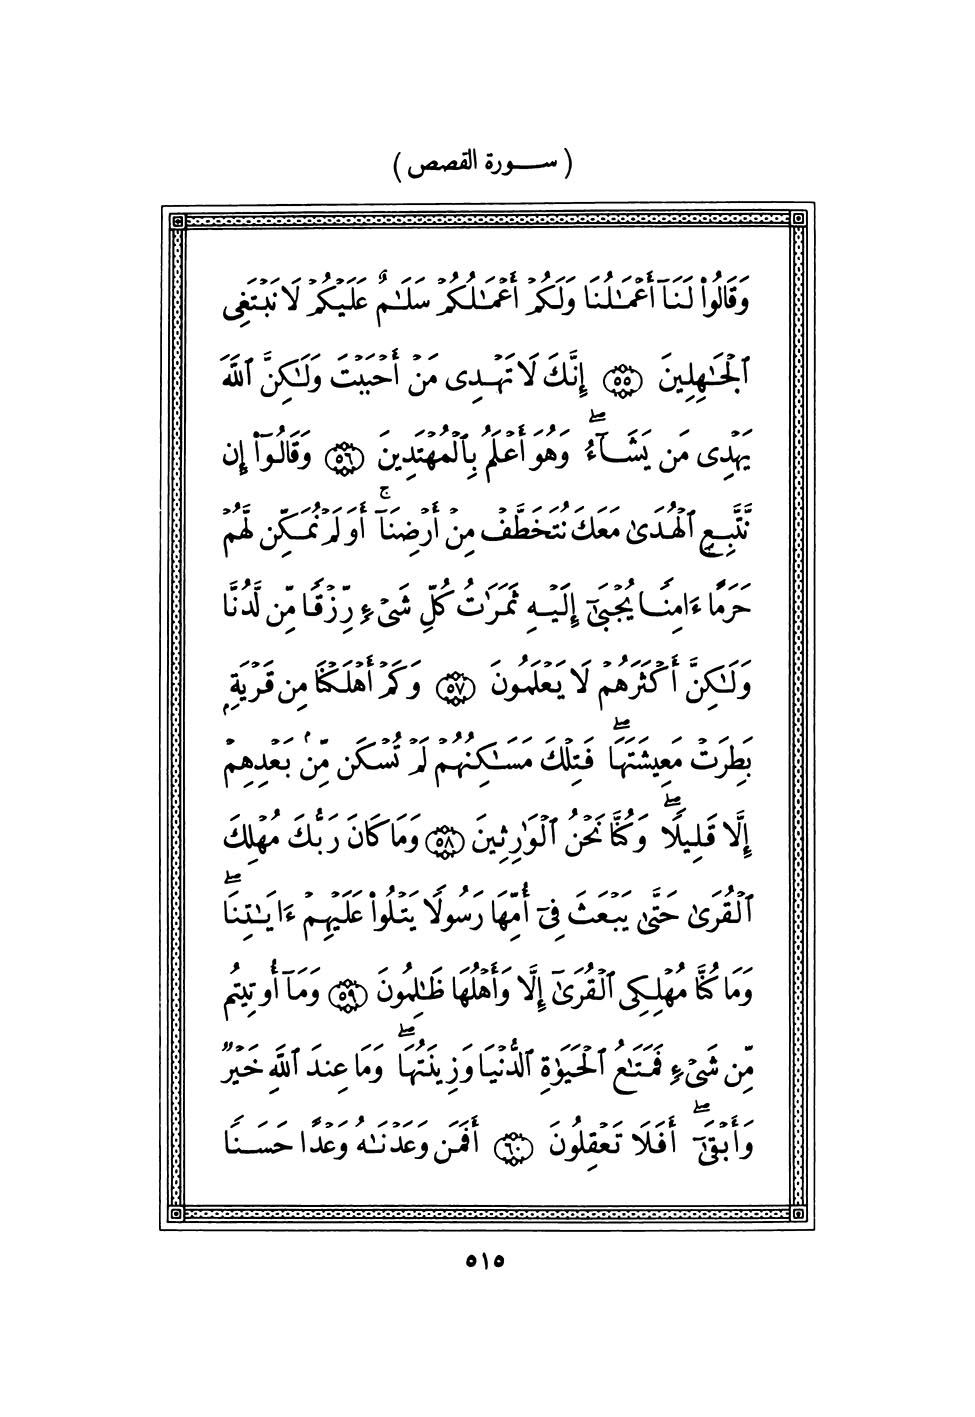 ( سورة القصص )
وَقَالُوا۟ لَنَآ أَعْمَـٰلُنَا وَلَكُمْ أَعْمَـٰلُكُمْ سَلَـٰمٌ عَلَيْكُمْ لَا نَبْتَغِى
ٱلْجَـٰهِلِينَ ۝٥٥ إِنَّكَ لَا تَهْدِى مَنْ أَحْبَبْتَ وَلَـٰكِنَّ ٱللَّهَ
يَهْدِى مَن يَشَآءُ ۖ وَهُوَ أَعْلَمُ بِٱلْمُهْتَدِينَ ۝٥٦ وَقَالُوٓا۟ إِن
نَّتَّبِعِ ٱلْهُدَىٰ مَعَكَ نُتَخَطَّفْ مِنْ أَرْضِنَآ ۚ أَوَلَمْ نُمَكِّن لَّهُمْ
حَرَمًا ءَامِنًا يُجْبَىٰٓ إِلَيْهِ ثَمَرَٰتُ كُلِّ شَىْءٍ رِّزْقًا مِّن لَّدُنَّا
وَلَـٰكِنَّ أَكْثَرَهُمْ لَا يَعْلَمُونَ ۝٥٧ وَكَمْ أَهْلَكْنَا مِن قَرْيَةٍۭ
بَطِرَتْ مَعِيشَتَهَا ۖ فَتِلْكَ مَسَـٰكِنُهُمْ لَمْ تُسْكَن مِّنۢ بَعْدِهِمْ
إِلَّا قَلِيلًا ۖ وَكُنَّا نَحْنُ ٱلْوَٰرِثِينَ ۝٥٨ وَمَا كَانَ رَبُّكَ مُهْلِكَ
ٱلْقُرَىٰ حَتَّىٰ يَبْعَثَ فِىٓ أُمِّهَا رَسُولًا يَتْلُوا۟ عَلَيْهِمْ ءَايَـٰتِنَا ۖ
وَمَا كُنَّا مُهْلِكِى ٱلْقُرَىٰٓ إِلَّا وَأَهْلُهَا ظَـٰلِمُونَ ۝٥٩ وَمَآ أُوتِيتُم
مِّن شَىْءٍ فَمَتَـٰعُ ٱلْحَيَوٰةِ ٱلدُّنْيَا وَزِينَتُهَا ۖ وَمَا عِندَ ٱللَّهِ خَيْرٌ
وَأَبْقَىٰٓ ۖ أَفَلَا تَعْقِلُونَ ۝٦٠ أَفَمَن وَعَدْنَـٰهُ وَعْدًا حَسَنًا
٥١٥